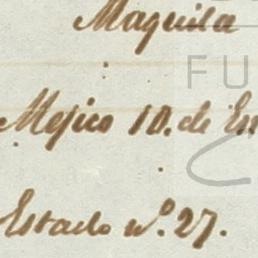 Maquila
FU
Mejico 10. de En
Estado nº. 27.